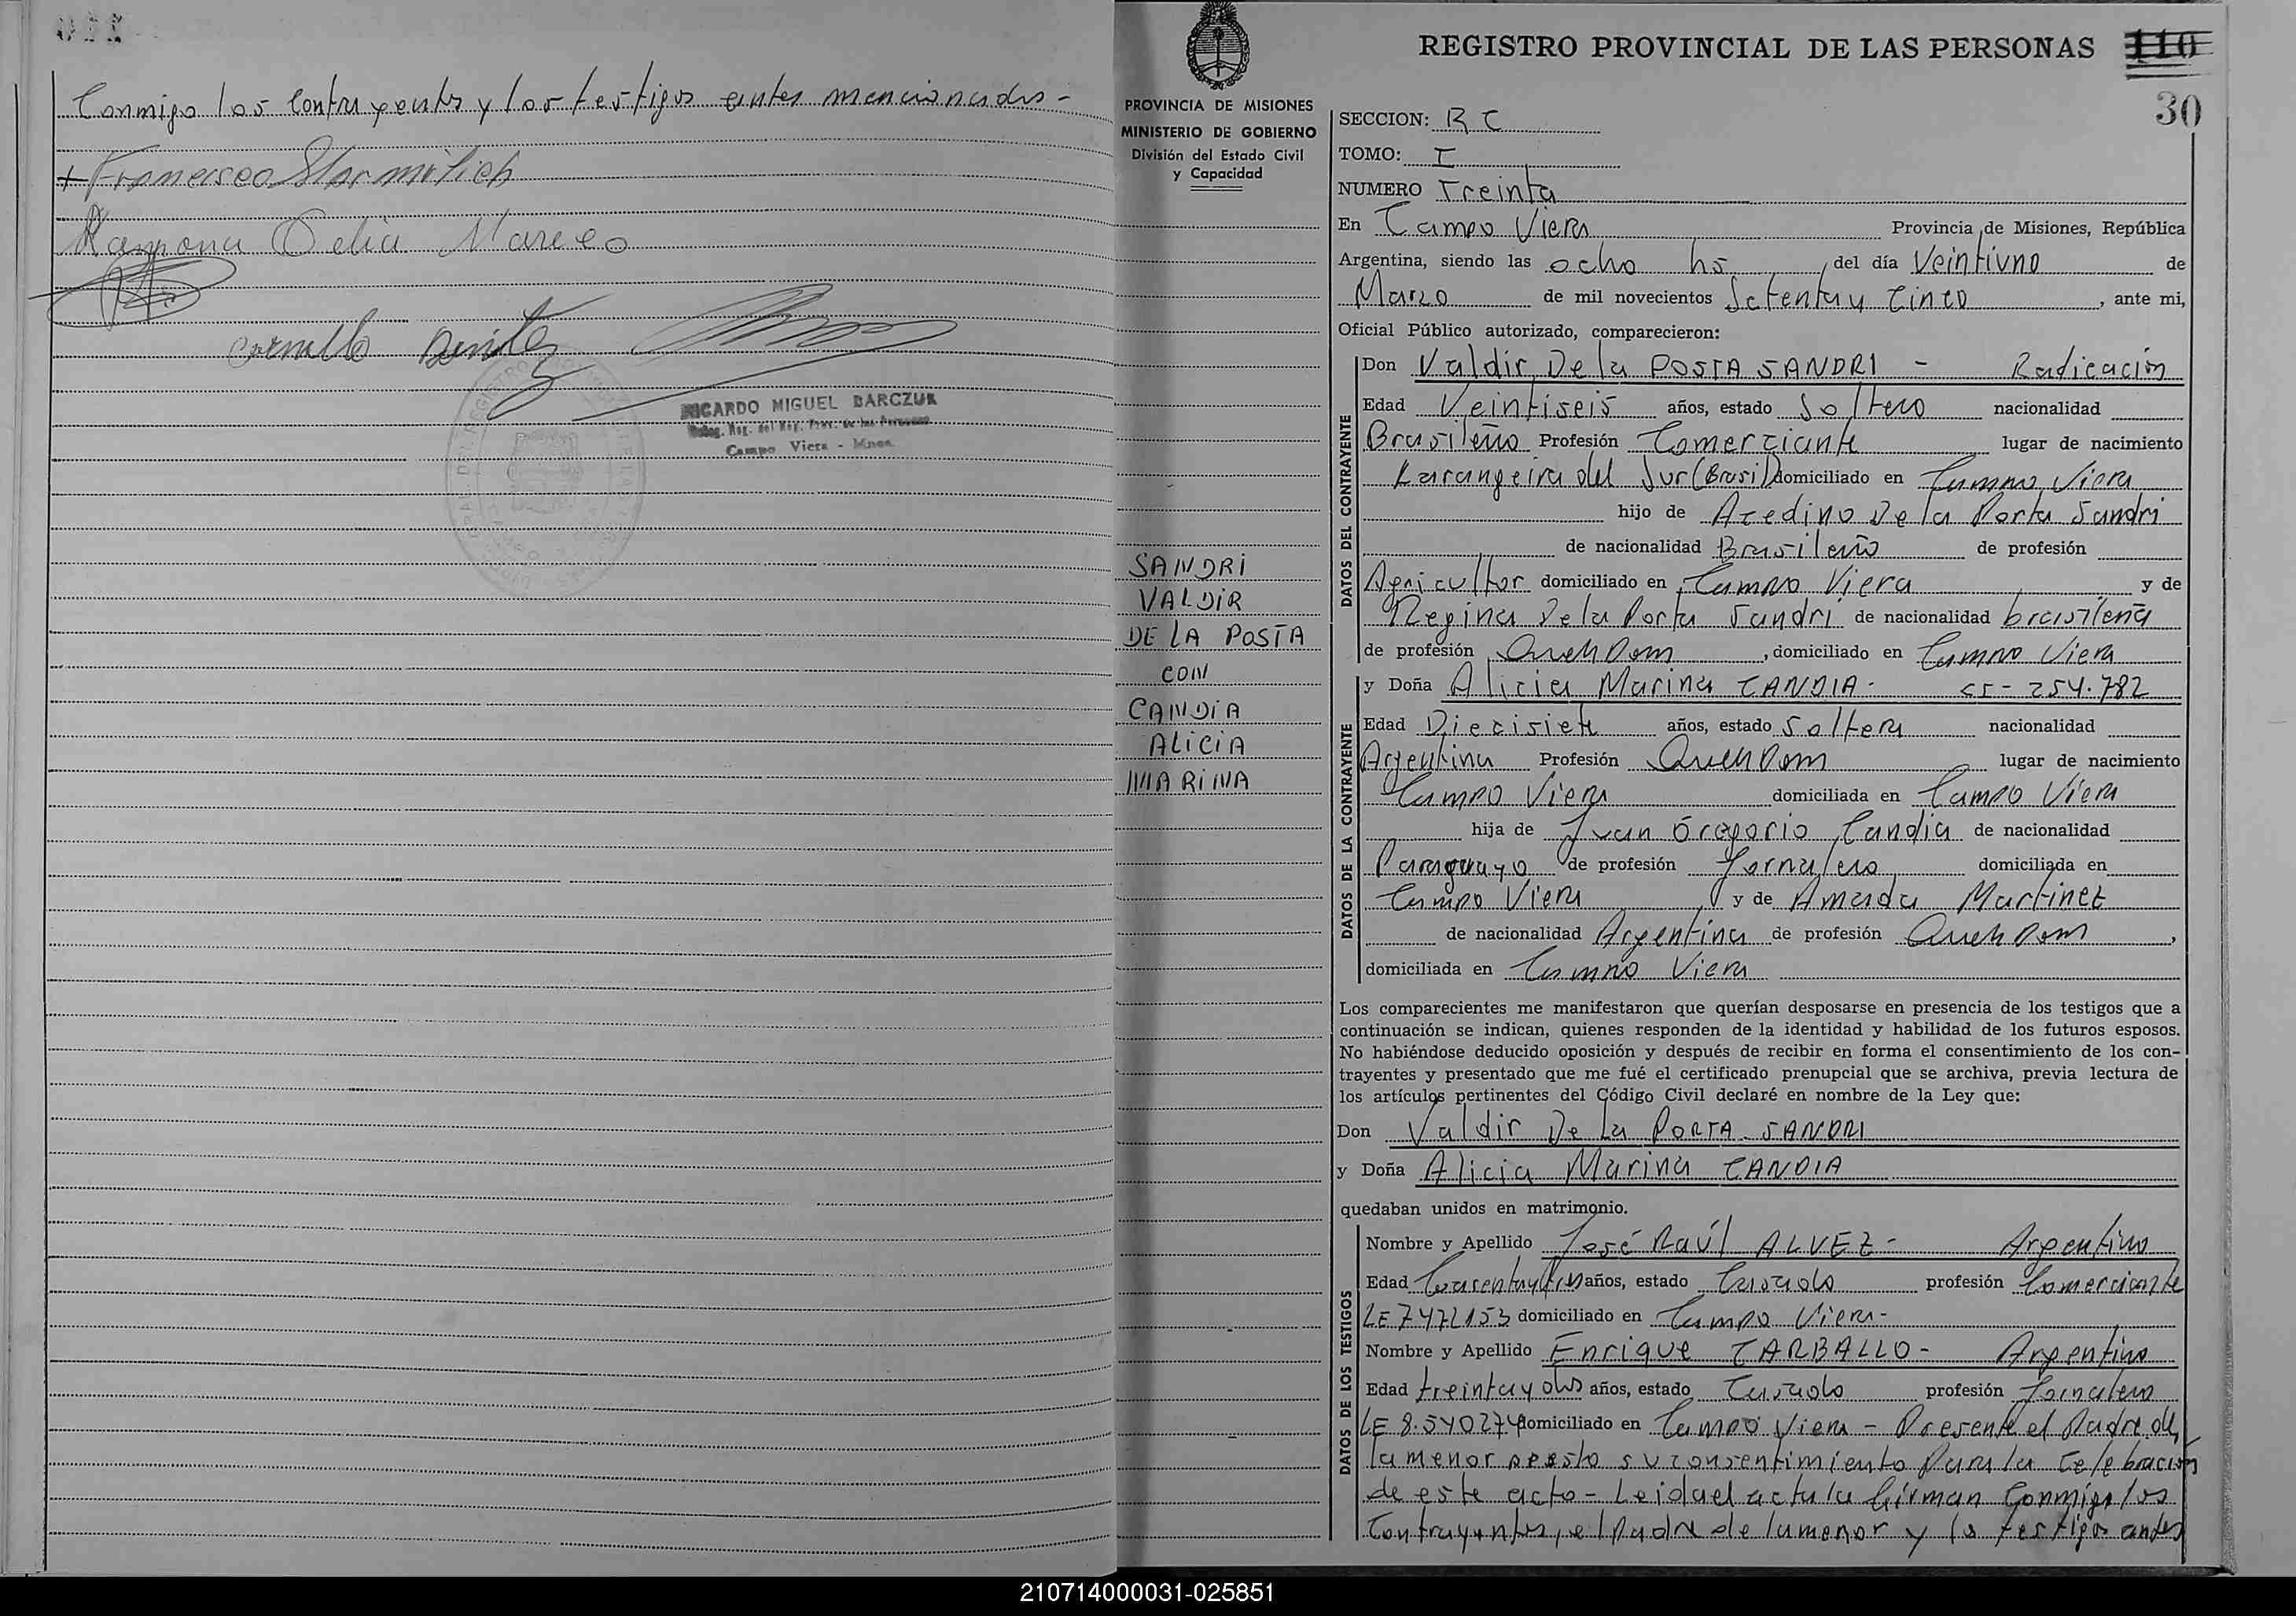 Conmigo los Contrayentes y los testigos antes mencionados -
Francisco
Ramona Delia Mareco
Benitez
RICARDO MIGUEL BARCZUK
Campo Viera - Mnes.
REGISTRO PROVINCIAL DE LAS PERSONAS 110
30
PROVINCIA DE MISIONES
MINISTERIO DE GOBIERNO
División del Estado Civil
y Capacidad
SANDRI
VALDIR
DE LA POSTA
CON
CANDIA
ALICIA
MARINA
SECCION: RC
TOMO: I
NUMERO Treinta
En Campo Viera Provincia de Misiones, República
Argentina, siendo las ocho hs, del día Veintiuno de
Marzo de mil novecientos Setenta y Cinco, ante mi,
Oficial Público autorizado, comparecieron:
DATOS DEL CONTRAYENTE
Don Valdir De la POSTA SANDRI - Radicación
Edad Veintiseis años, estado Soltero nacionalidad
Brasileño Profesión Comerciante lugar de nacimiento
Larangeira del Sur (Brasil) domiciliado en Campo Viera
hijo de Acedino De la Porta Sandri
de nacionalidad Brasileño de profesión
Agricultor domiciliado en Campo Viera y de
Regina De la Porta Sandri de nacionalidad brasileña
de profesión Queh Dom, domiciliado en Campo Viera
DATOS DE LA CONTRAYENTE
y Doña Alicia Marina CANDIA - 254.782
Edad Diecisiete años, estado Soltera nacionalidad
Argentina Profesión Queh Dom lugar de nacimiento
Campo Viera domiciliada en Campo Viera
hija de Juan Gregorio Candia de nacionalidad
Paraguayo de profesión Jornalero domiciliada en
Campo Viera y de Amada Martinez
de nacionalidad Argentina de profesión Queh Dom,
domiciliada en Campo Viera
Los comparecientes me manifestaron que querían desposarse en presencia de los testigos que a
continuación se indican, quienes responden de la identidad y habilidad de los futuros esposos.
No habiéndose deducido oposición y después de recibir en forma el consentimiento de los con-
trayentes y presentado que me fué el certificado prenupcial que se archiva, previa lectura de
los artículos pertinentes del Código Civil declaré en nombre de la Ley que:
Don Valdir De La PORTA SANDRI
y Doña Alicia Marina CANDIA
quedaban unidos en matrimonio.
DATOS DE LOS TESTIGOS
Nombre y Apellido José Raúl ALVEZ - Argentino
Edad años, estado Casado profesión Comerciante
LE 7472153 domiciliado en Campo Viera -
Nombre y Apellido Enrique CARBALLO - Argentino
Edad treinta y dos años, estado Casado profesión Jornalero
LE 8.540274 domiciliado en Campo Viera - Presente el Padre de
la menor presto su consentimiento Para la Celebración
de este acto - Leida el acta la firman Conmigo los
Contrayentes, el Padre de la menor y los testigos antes
210714000031-025851